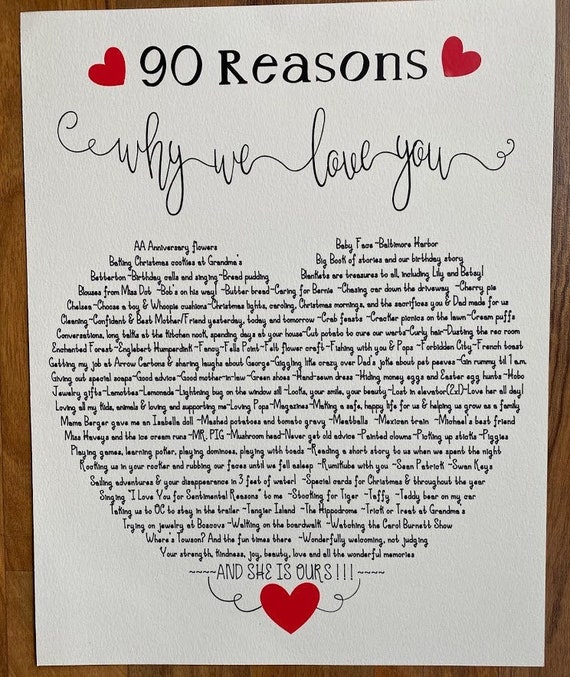 90 Reasons
why we love you
AA Anniversary flowers
Baby Face ~Baltimore Harbor
Baking Christmas cookies at Grandma's
Big Book of stories and our birthday story
Betterton~Birthday calls and singing~Bread pudding
Blankets are treasures to all, including Lily and Betsy!
Blouses from Miss Dot ~Bob's on his way! ~Butter bread~Caring for Bernie ~Chasing car down the driveway ~Cherry pie
Chelsea~Choose a toy & Whoopie cushions~Christmas lights, caroling, Christmas mornings, and the sacrifices you & Dad made for us
Cleaning~Confidant & Best Mother/Friend yesterday, today and tomorrow ~Crab feasts ~Cracker picnics on the lawn~Cream puffs
Conversations, long talks at the kitchen nook, spending days at your house~Cut potato to cure our warts~Curly hair~Dusting the rec room
Enchanted Forest~Englebert Humperdink ~Fancy~Fells Point~Felt flower craft~Fishing with you & Pops ~Forbidden City~French toast
Getting my job at Arrow Cartons & sharing laughs about George~Giggling like crazy over Dad's joke about pet peeves ~Gin rummy til 1 a.m.
Giving out special soaps~Good advice~Good mother-in-law ~Green shoes ~Hand-sewn dress ~Hiding money eggs and Easter egg hunts ~Hobo
Jewelry gifts~Lamottes~Lemonade ~Lightning bug on the window sill ~Looks, your smile, your beauty~Lost in elevator(2x)~Love her all day!
Loving all my kids, animals & loving and supporting me~Loving Pops~Magazines~Making a safe, happy life for us & helping us grow as a family
Mama Berger gave me an Isabella doll ~Mashed potatoes and tomato gravy ~Meatballs ~Mexican train ~Michael's best friend
Miss Haveys and the ice cream runs ~MR. PIG ~Mushroom head~Never get old advice ~Painted clowns ~Picking up sticks ~Piggies
Playing games, learning poker, playing dominoes, playing with toads ~Reading a short story to us when we spent the night
Rocking us in your rocker and rubbing our faces until we fell asleep ~Rumikuts with you ~Sean Patrick ~Swan Keys
Sailing adventures & your disappearance in 3 feet of water! ~Special cards for Christmas & throughout the year
Singing "I Love You for Sentimental Reasons" to me ~Stocking for Tiger ~Taffy ~Teddy bear on my car
Taking us to OC to stay in the trailer ~Tangier Island ~The Hippodrome ~Trick or Treat at Grandma's
Trying on jewelry at Boscovs ~Walking on the boardwalk ~Watching the Carol Burnett Show
Where's Towson? And the fun times there ~Wonderfully welcoming, not judging
Your strength, kindness, joy, beauty, love and all the wonderful memories
~~~~AND SHE IS OURS!!!~~~~